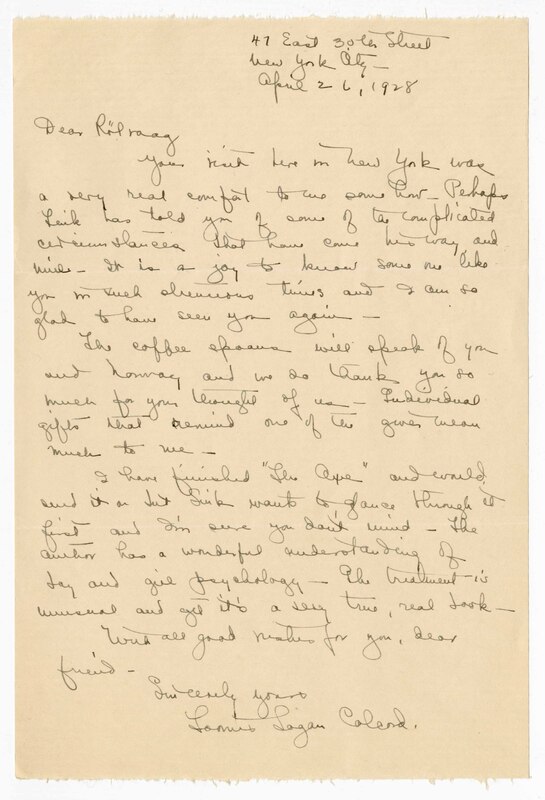 47 East 30th Street
New York City —
April 26, 1928
Dear Rölvaag
Your visit here in New York was
a very real comfort to me some how — Perhaps
Link has told you of some of the complicated
circumstances that have come his way and
mine — It is a joy to know some one like
you in such strenuous times and I am so
glad to have seen you again —
The coffee spoons will speak of you
and Norway and we do thank you so
much for your thought of us — Individual
gifts that remind one of the giver mean
much to me —
I have finished "The Ape" and would
send it on but Link wants to glance through it
first and I'm sure you don't mind — The
author has a wonderful understanding of
boy and girl psychology — The treatment is
unusual and yet it's a very true, real book —
With all good wishes for you, dear
friend —
Sincerely yours
Loomis Logan Colcord.